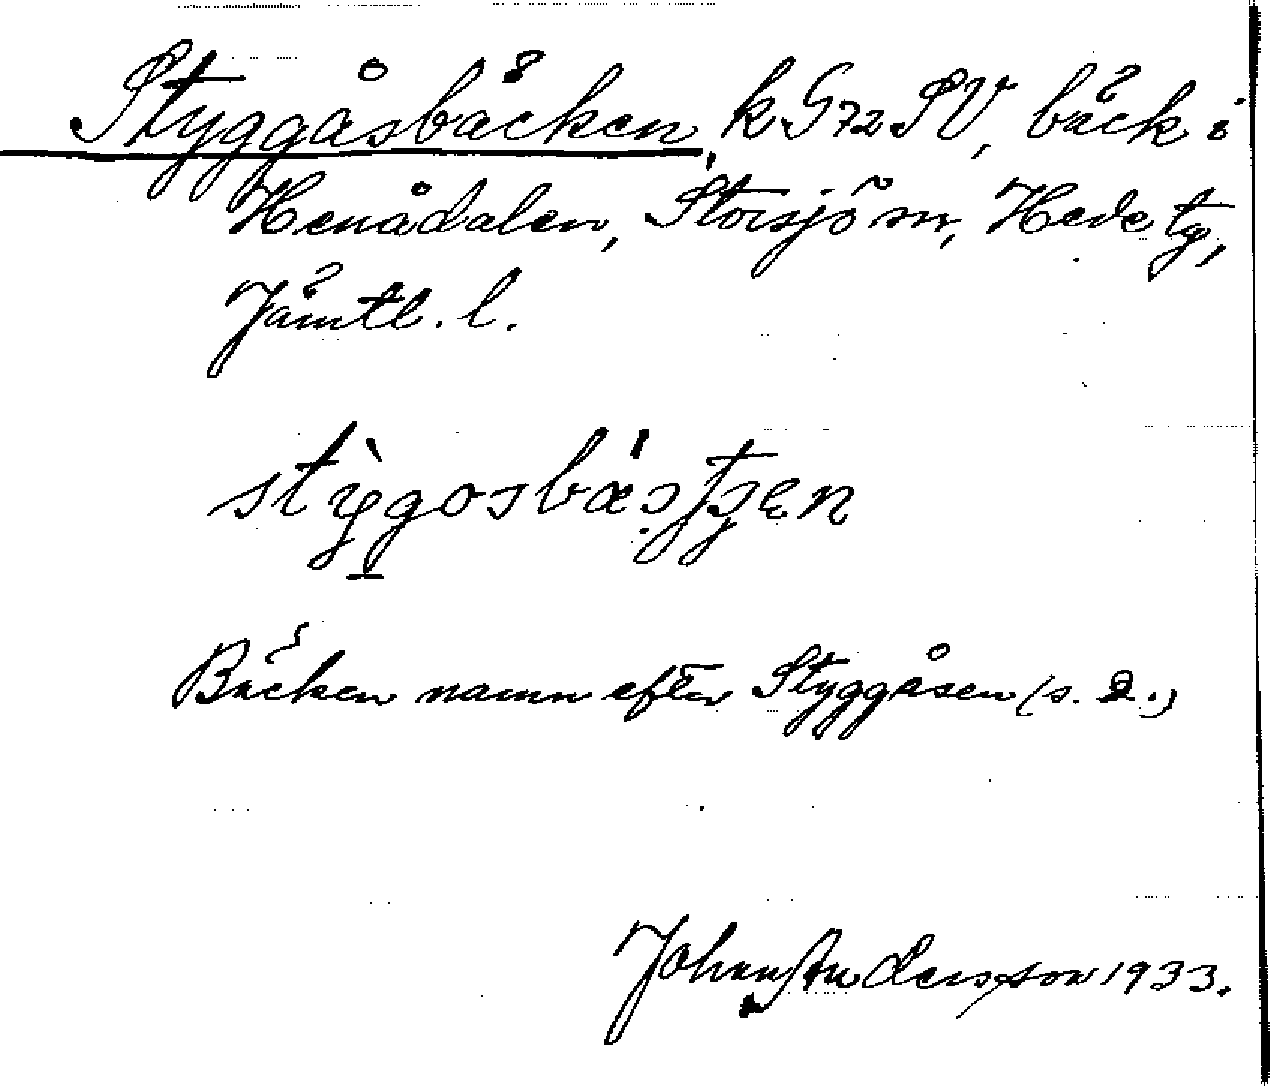 Styggåsbäcken, k G72 SV, bäck i
Henådalen, Storsjö sn, Hede tg,
Jämtl. l.
Bäcken namn efter Styggåsen (s. d.)
Johan Andersson 1933.